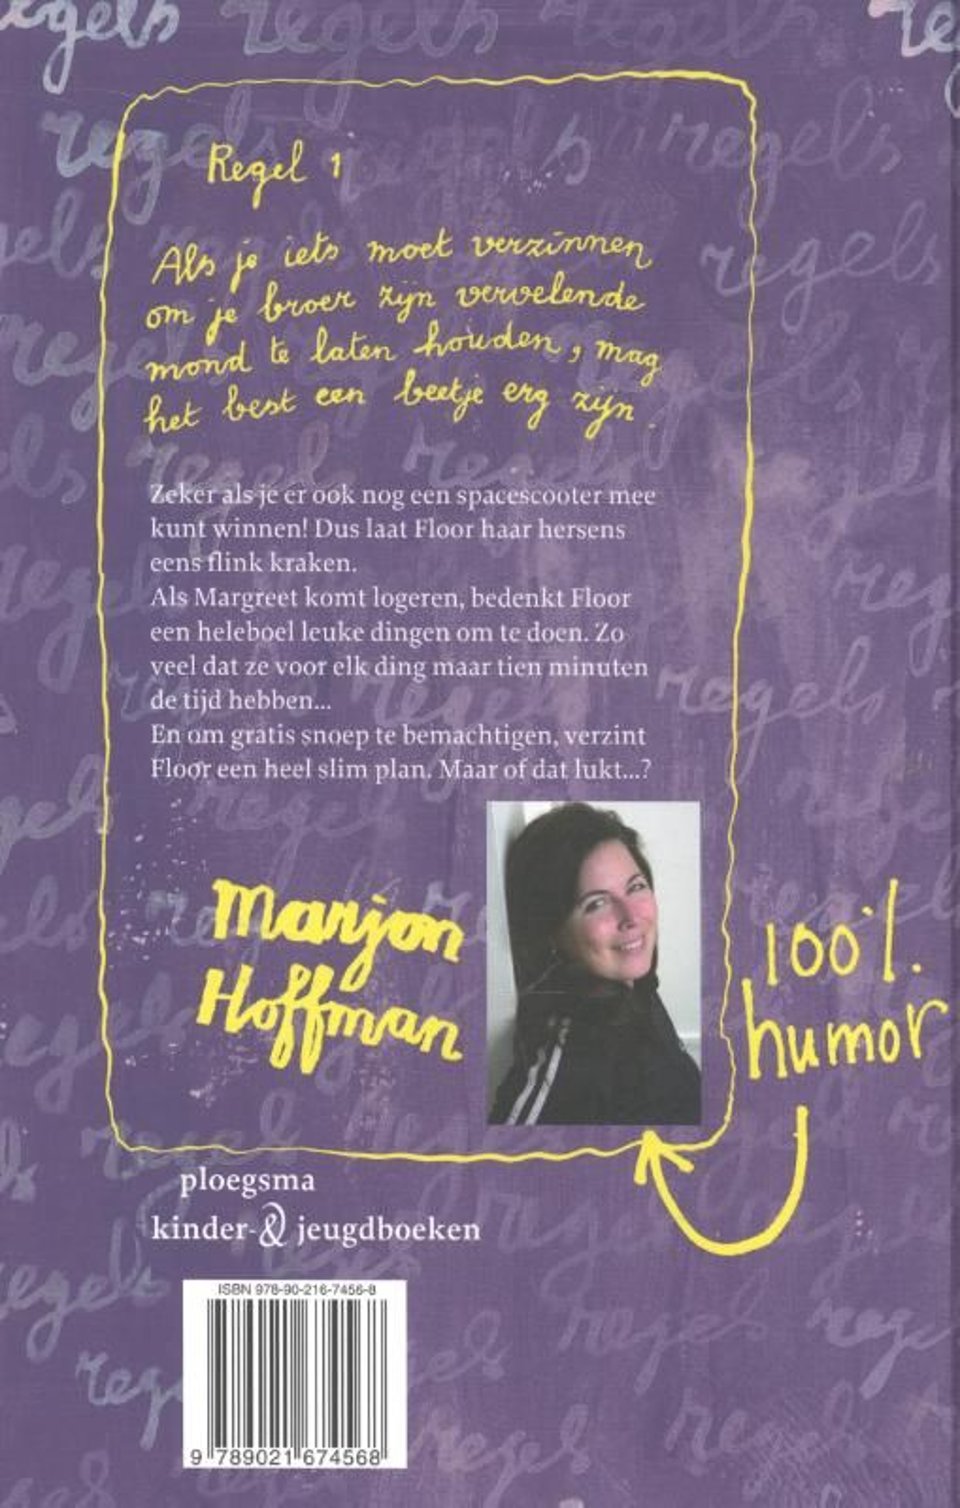 Regel 1
Als je iets moet verzinnen
om je broer zijn vervelende
mond te laten houden, mag
het best een beetje erg zijn.
Zeker als je er ook nog een spacescooter mee
kunt winnen! Dus laat Floor haar hersens
eens flink kraken.
Als Margreet komt logeren, bedenkt Floor
een heleboel leuke dingen om te doen. Zo
veel dat ze voor elk ding maar tien minuten
de tijd hebben...
En om gratis snoep te bemachtigen, verzint
Floor een heel slim plan. Maar of dat lukt...?
Marjon
Hoffman
100%
humor
ploegsma
kinder-& jeugdboeken
ISBN 978-90-216-7456-8
9 789021 674568